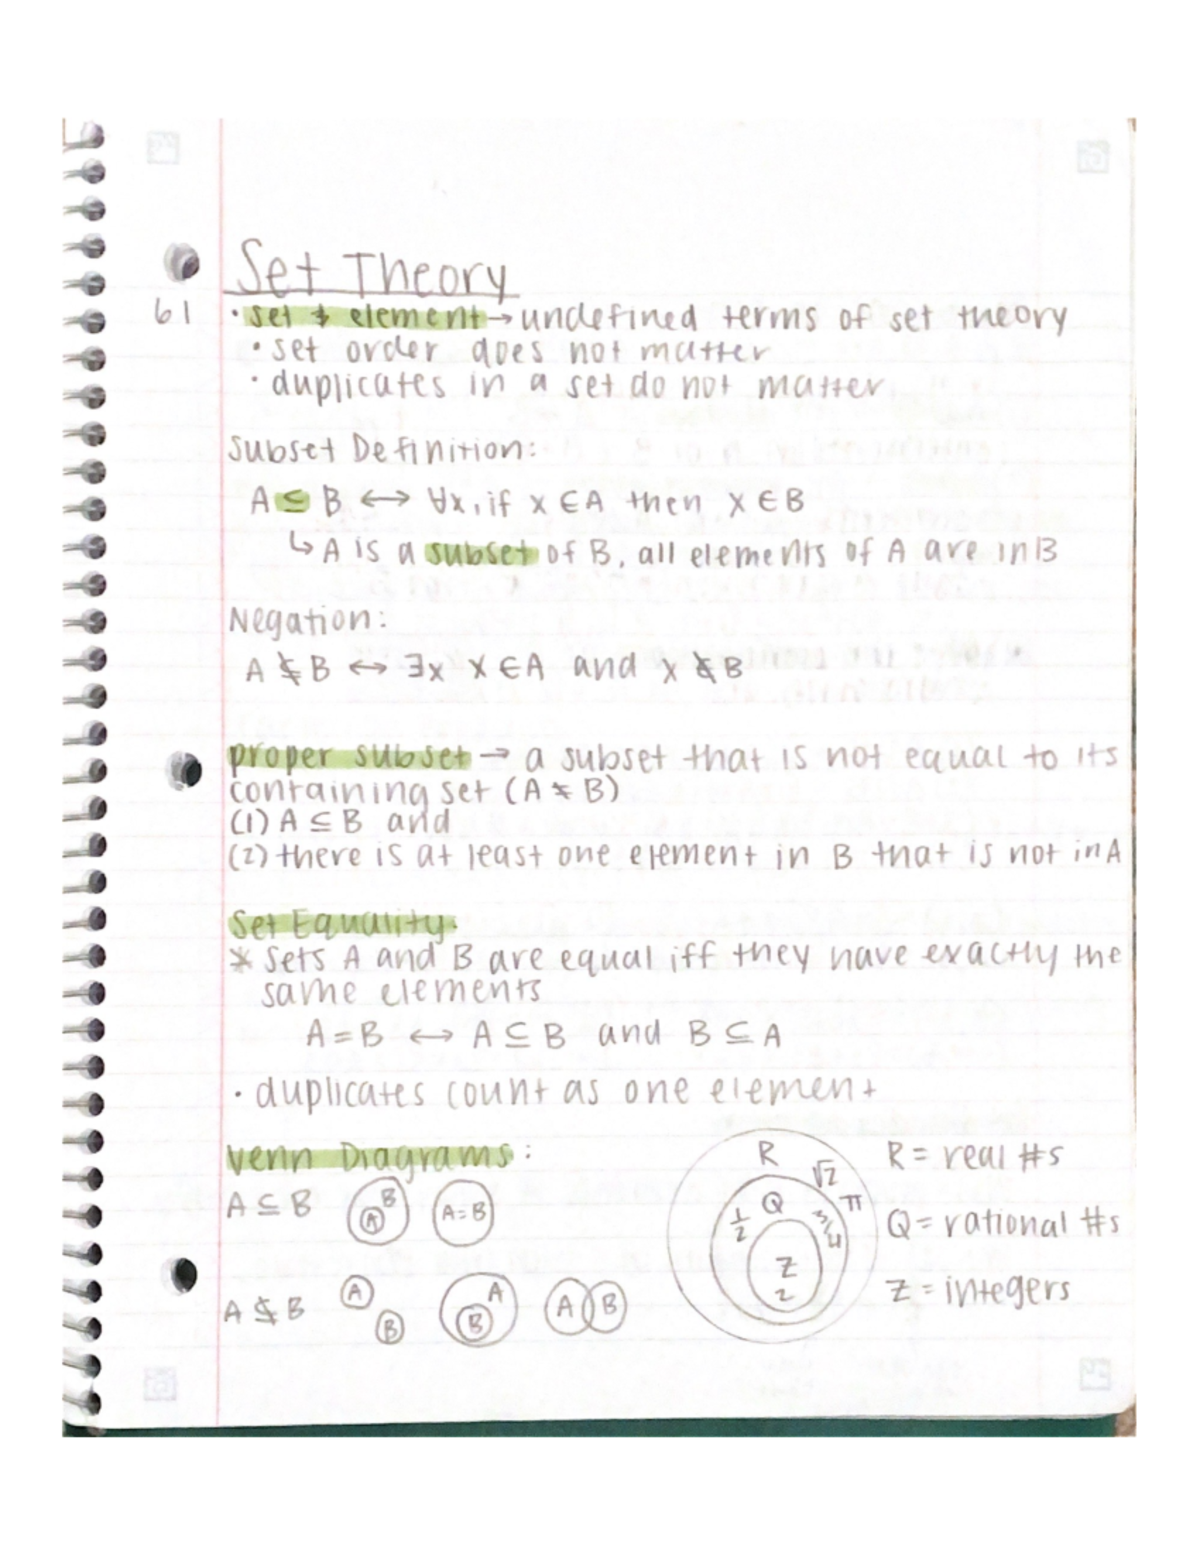 Set Theory
61 • set & element → undefined terms of set theory
• set order does not matter
• duplicates in a set do not matter
Subset Definition:
A ⊆ B ↔ ∀x, if x ∈ A then x ∈ B
↳ A is a subset of B, all elements of A are in B
Negation:
A ⊈ B ↔ ∃x x ∈ A and x ⊈ B
proper subset → a subset that is not equal to its
containing set (A ≠ B)
(1) A ⊆ B and
(2) there is at least one element in B that is not in A
Set Equality:
* Sets A and B are equal iff they have exactly the
same elements
A = B ↔ A ⊆ B and B ⊆ A
• duplicates count as one element
Venn Diagrams:
A ⊆ B B A A=B
A ⊈ B A B A B A B
R √2 π
Q 1/2 3/4
Z 2
R = real #s
Q = rational #s
Z = integers